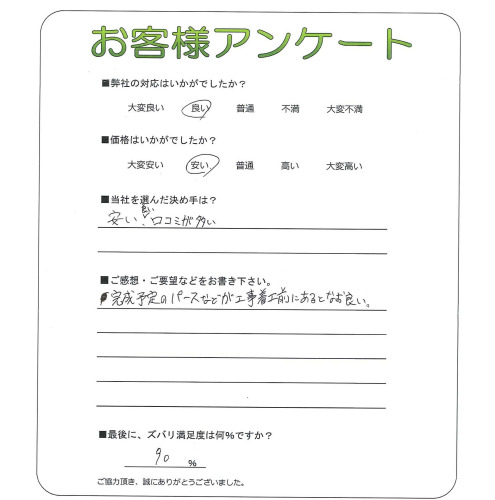 お客様アンケート
■弊社の対応はいかがでしたか？
大変良い 良い 普通 不満 大変不満
■価格はいかがでしたか？
大変安い 安い 普通 高い 大変高い
■当社を選んだ決め手は？
良い
安い! 口コミが多い
■ご感想・ご要望などをお書き下さい。
完成予定のパースなどが工事着工前にあるとなお良い。
■最後に、ズバリ満足度は何％ですか？
90 ％
ご協力頂き、誠にありがとうございました。